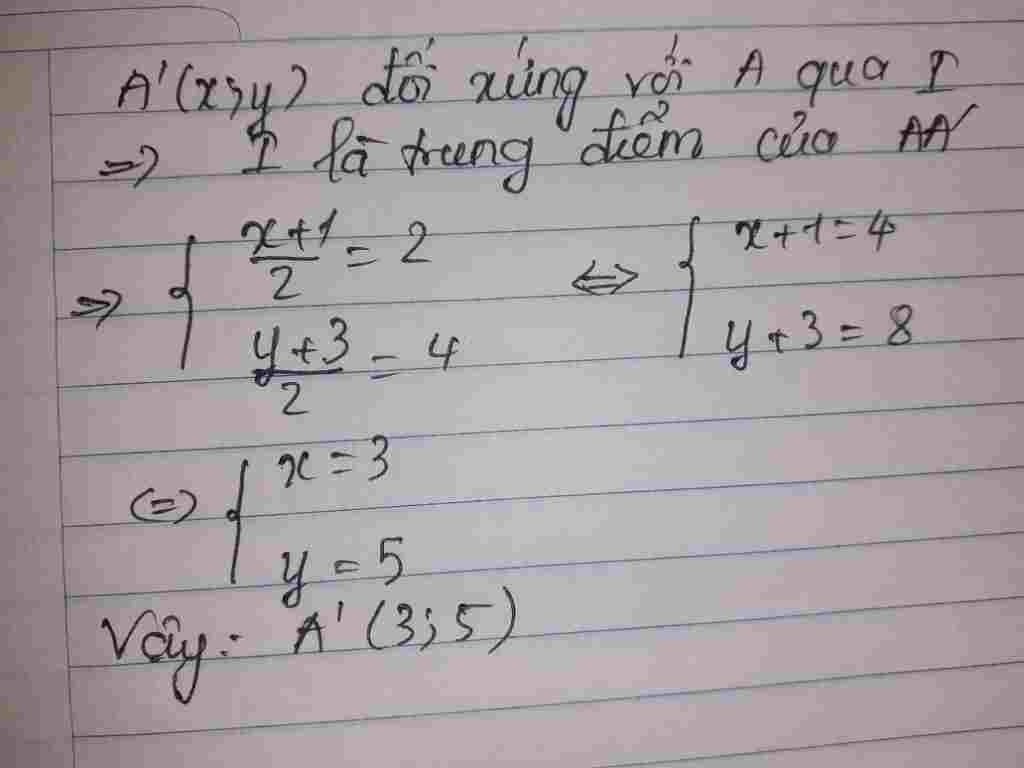 A'(x;y) đối xứng với A qua I
=> I là trung điểm của AA'
=> { (x+1)/2 = 2 <=> { x+1=4
(y+3)/2 = 4 y+3=8
(=) { x=3
y=5
Vậy: A'(3;5)